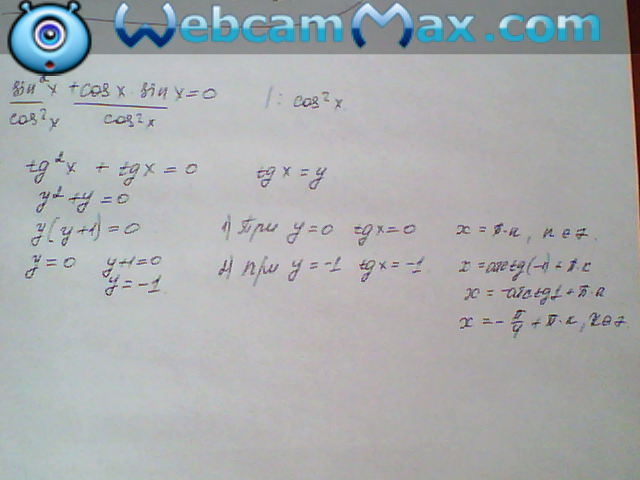 WebcamMax.com
sin²x/cos²x + cosx·sinx/cos²x = 0 /: cos²x
tg²x + tgx = 0 tgx = y
y² + y = 0
y(y+1) = 0 1) При y=0 tgx=0 x = π·n, n∈z.
y=0 y+1=0 2) при y=-1 tgx=-1 x = arctg(-1) + π·k
y=-1. x = -arctg1 + π·n
x = -π/4 + π·n, k∈z